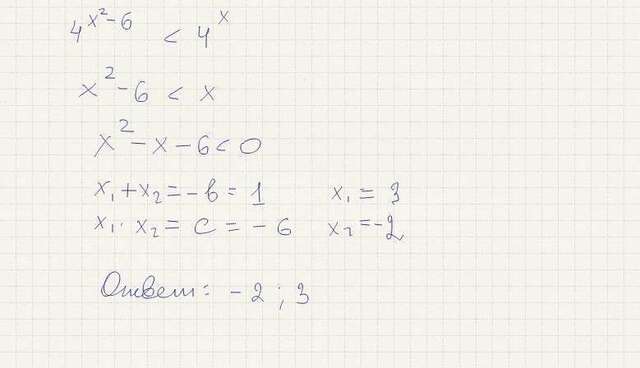 4^{x^2-6} < 4^x
x^2 - 6 < x
x^2 - x - 6 < 0
x_1 + x_2 = -b = 1    x_1 = 3
x_1 · x_2 = c = -6    x_2 = -2
Ответ: -2 ; 3